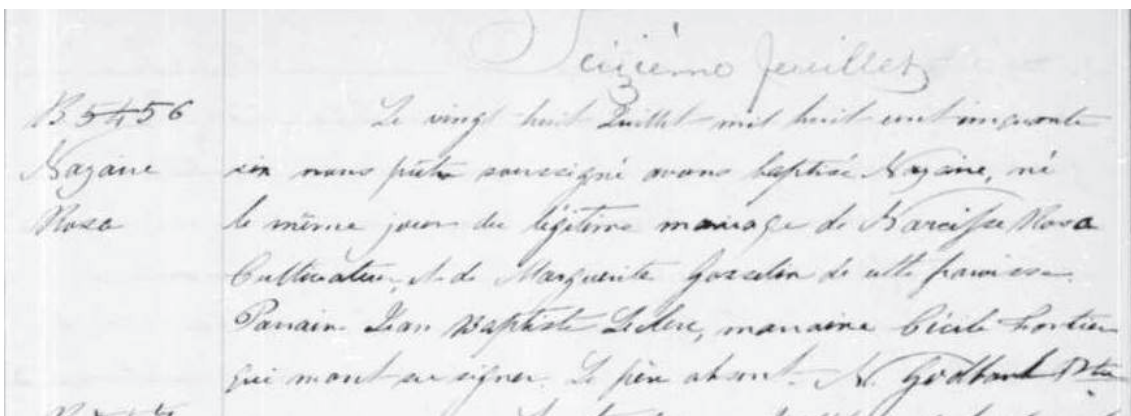 Seizième feuillet
B 5456 Le vingt huit Juillet mil huit cent cinquante
Nazaire six nous prêtre soussigné avons baptisé Nazaire, né
Rosa le même jour du légitime mariage de Narcisse Rosa
Cultivateur, et de Marguerite Gosselin de cette paroisse.
Parrain Jean Baptiste Leclerc, marraine Cécile Fortier
qui n'ont su signer. Le père absent. N. Godbout Ptre